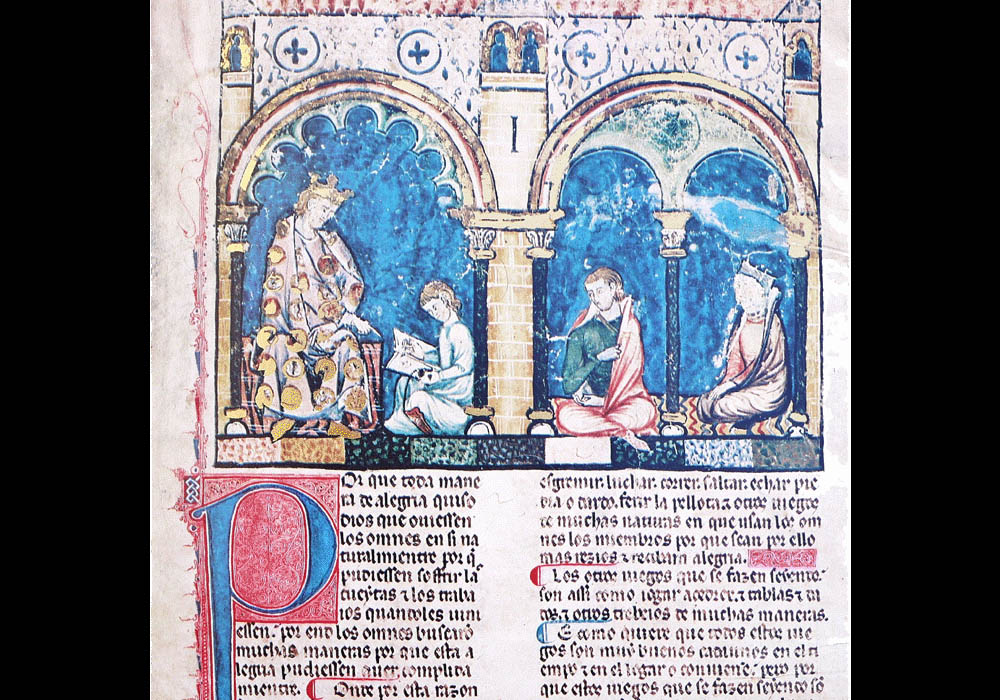 POr que toda mane
ra de alegria quiso
dios que ouiessen
los omnes en si na
turalmientre por q̃
pudiessen soffrir las
cueytas ⁊ los traba
ios quandoles uini
essen. por end los omnes buscarõ
muchas maneras por que esta a
legria pudiessen auer complida
mientre. Onde por esta razon
esgremir. luchar. correr. saltar. echar pie
dra o dardo. ferir la pellota; ⁊ otros iuegos
de muchas naturas en que usan los om
nes los miembros por que sean por ello
mas rezios ⁊ reciban alegria.
Los otros iuegos que se fazen seyendo;
son assi como iogar açedrex. ⁊ tablas ⁊ da
dos. ⁊ otros trebeios de muchas maneras.
E como quiere que todos estos iue
gos son muy buenos cadaunos en el ti
empo ⁊ en el logar o conuiene; pero por
que estos iuegos que se fazen seyendo sõ